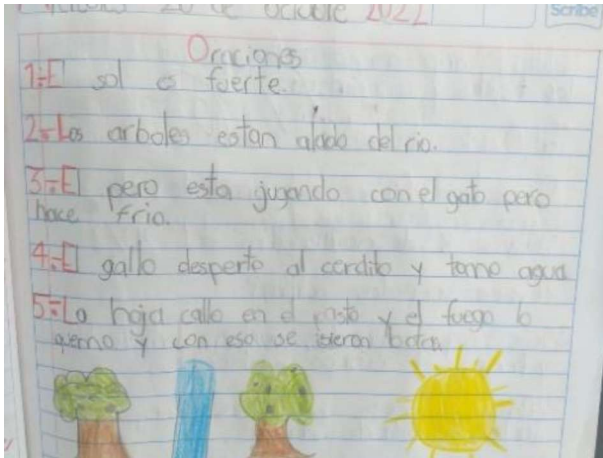 20 de octubre 2022
Scribe
Oraciones
1-El sol es fuerte.
2-Los arboles estan alado del rio.
3-El pero esta jugando con el gato pero
hace frio.
4-El gallo desperto al cerdito y tomo agua
5-La hoja callo en el pasto y el fuego lo
quemo y con eso se isieron